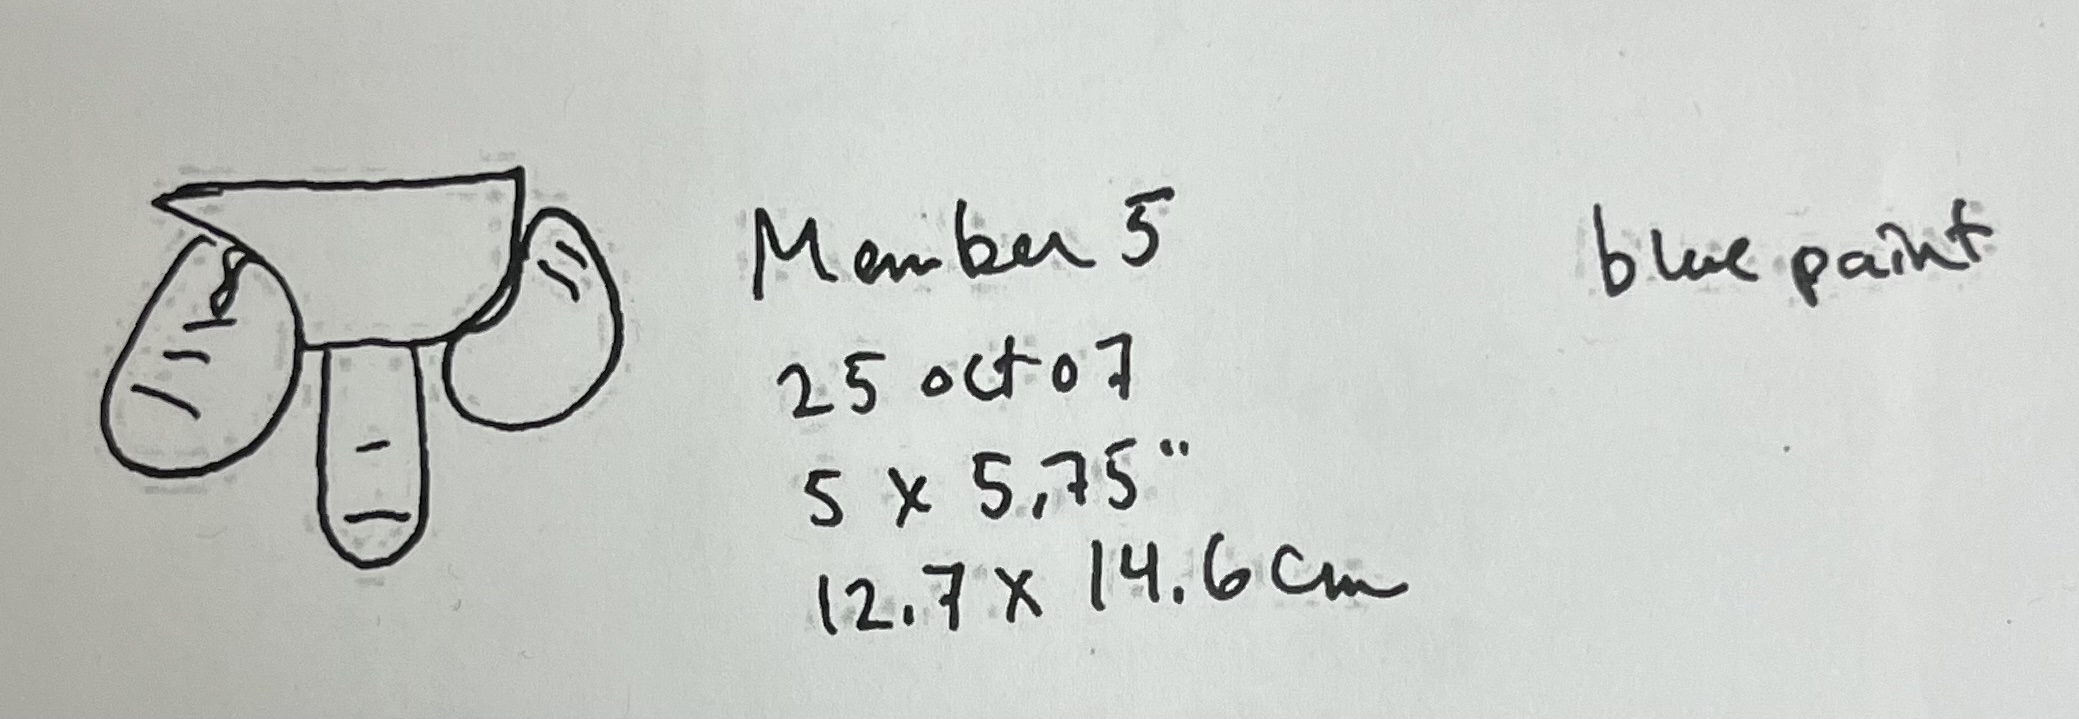 Member 5
blue paint
25 oct 07
5 x 5.75"
12.7 x 14.6 cm